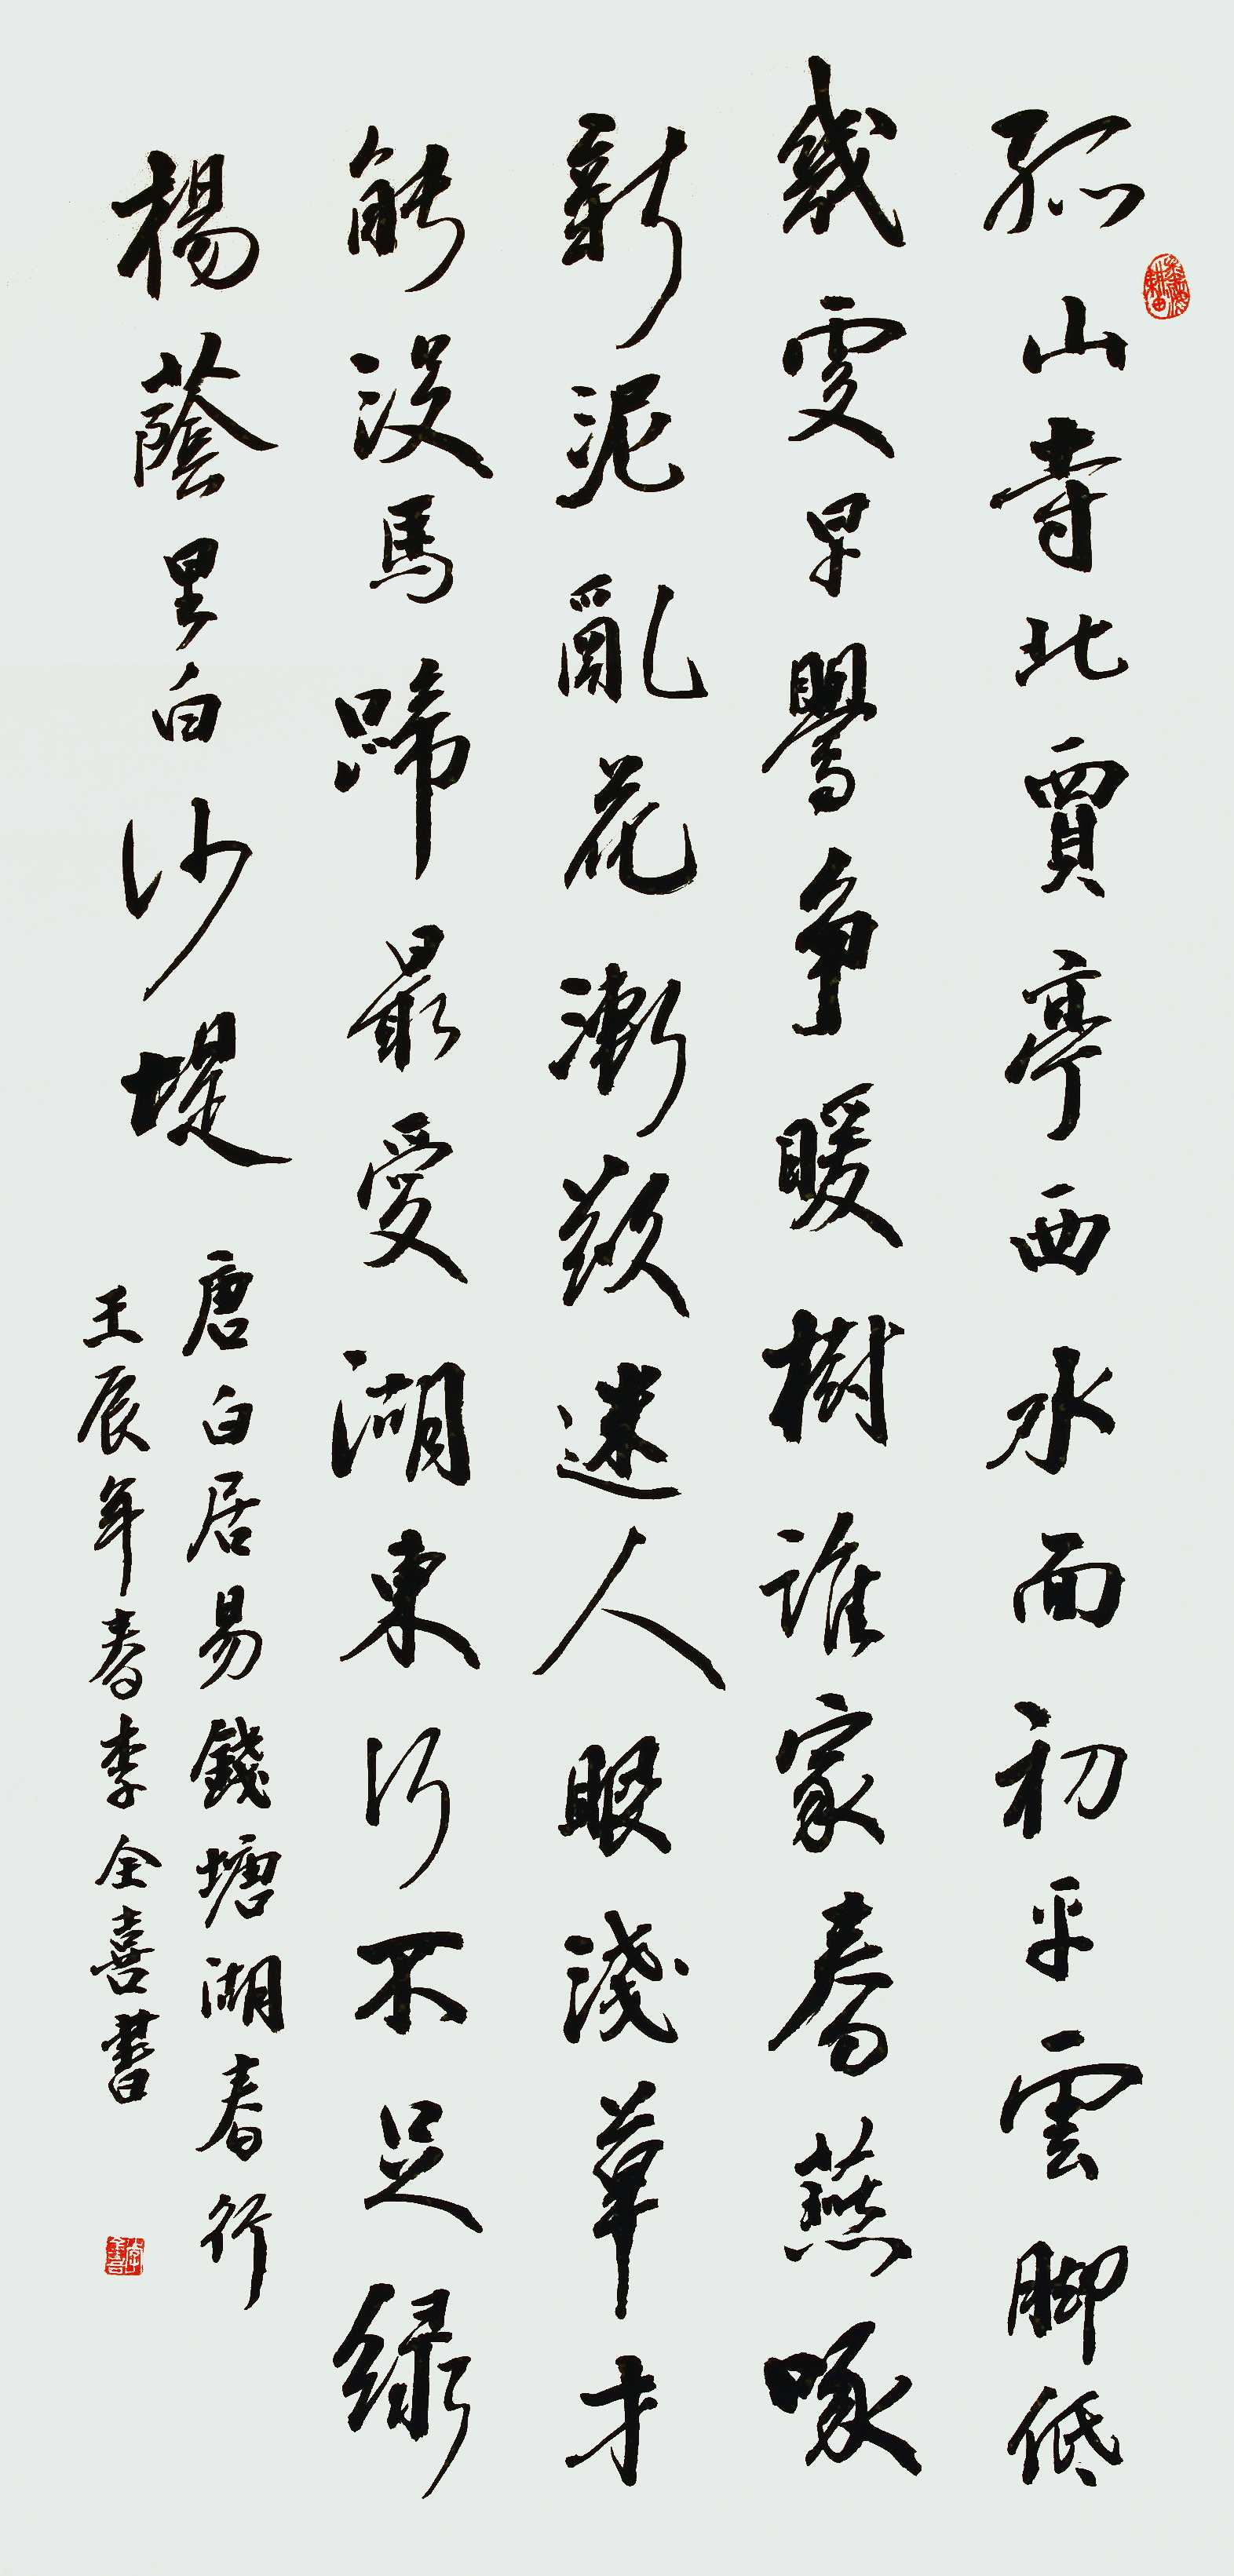 孤山寺北賈亭西水面初平雲脚低
幾處早鶯争暖樹誰家春燕啄
新泥亂花漸欲迷人眼淺草才
能没馬蹄最愛湖東行不足緑
楊蔭里白沙堤
唐白居易錢塘湖春行
壬辰年春李全喜書
李全喜